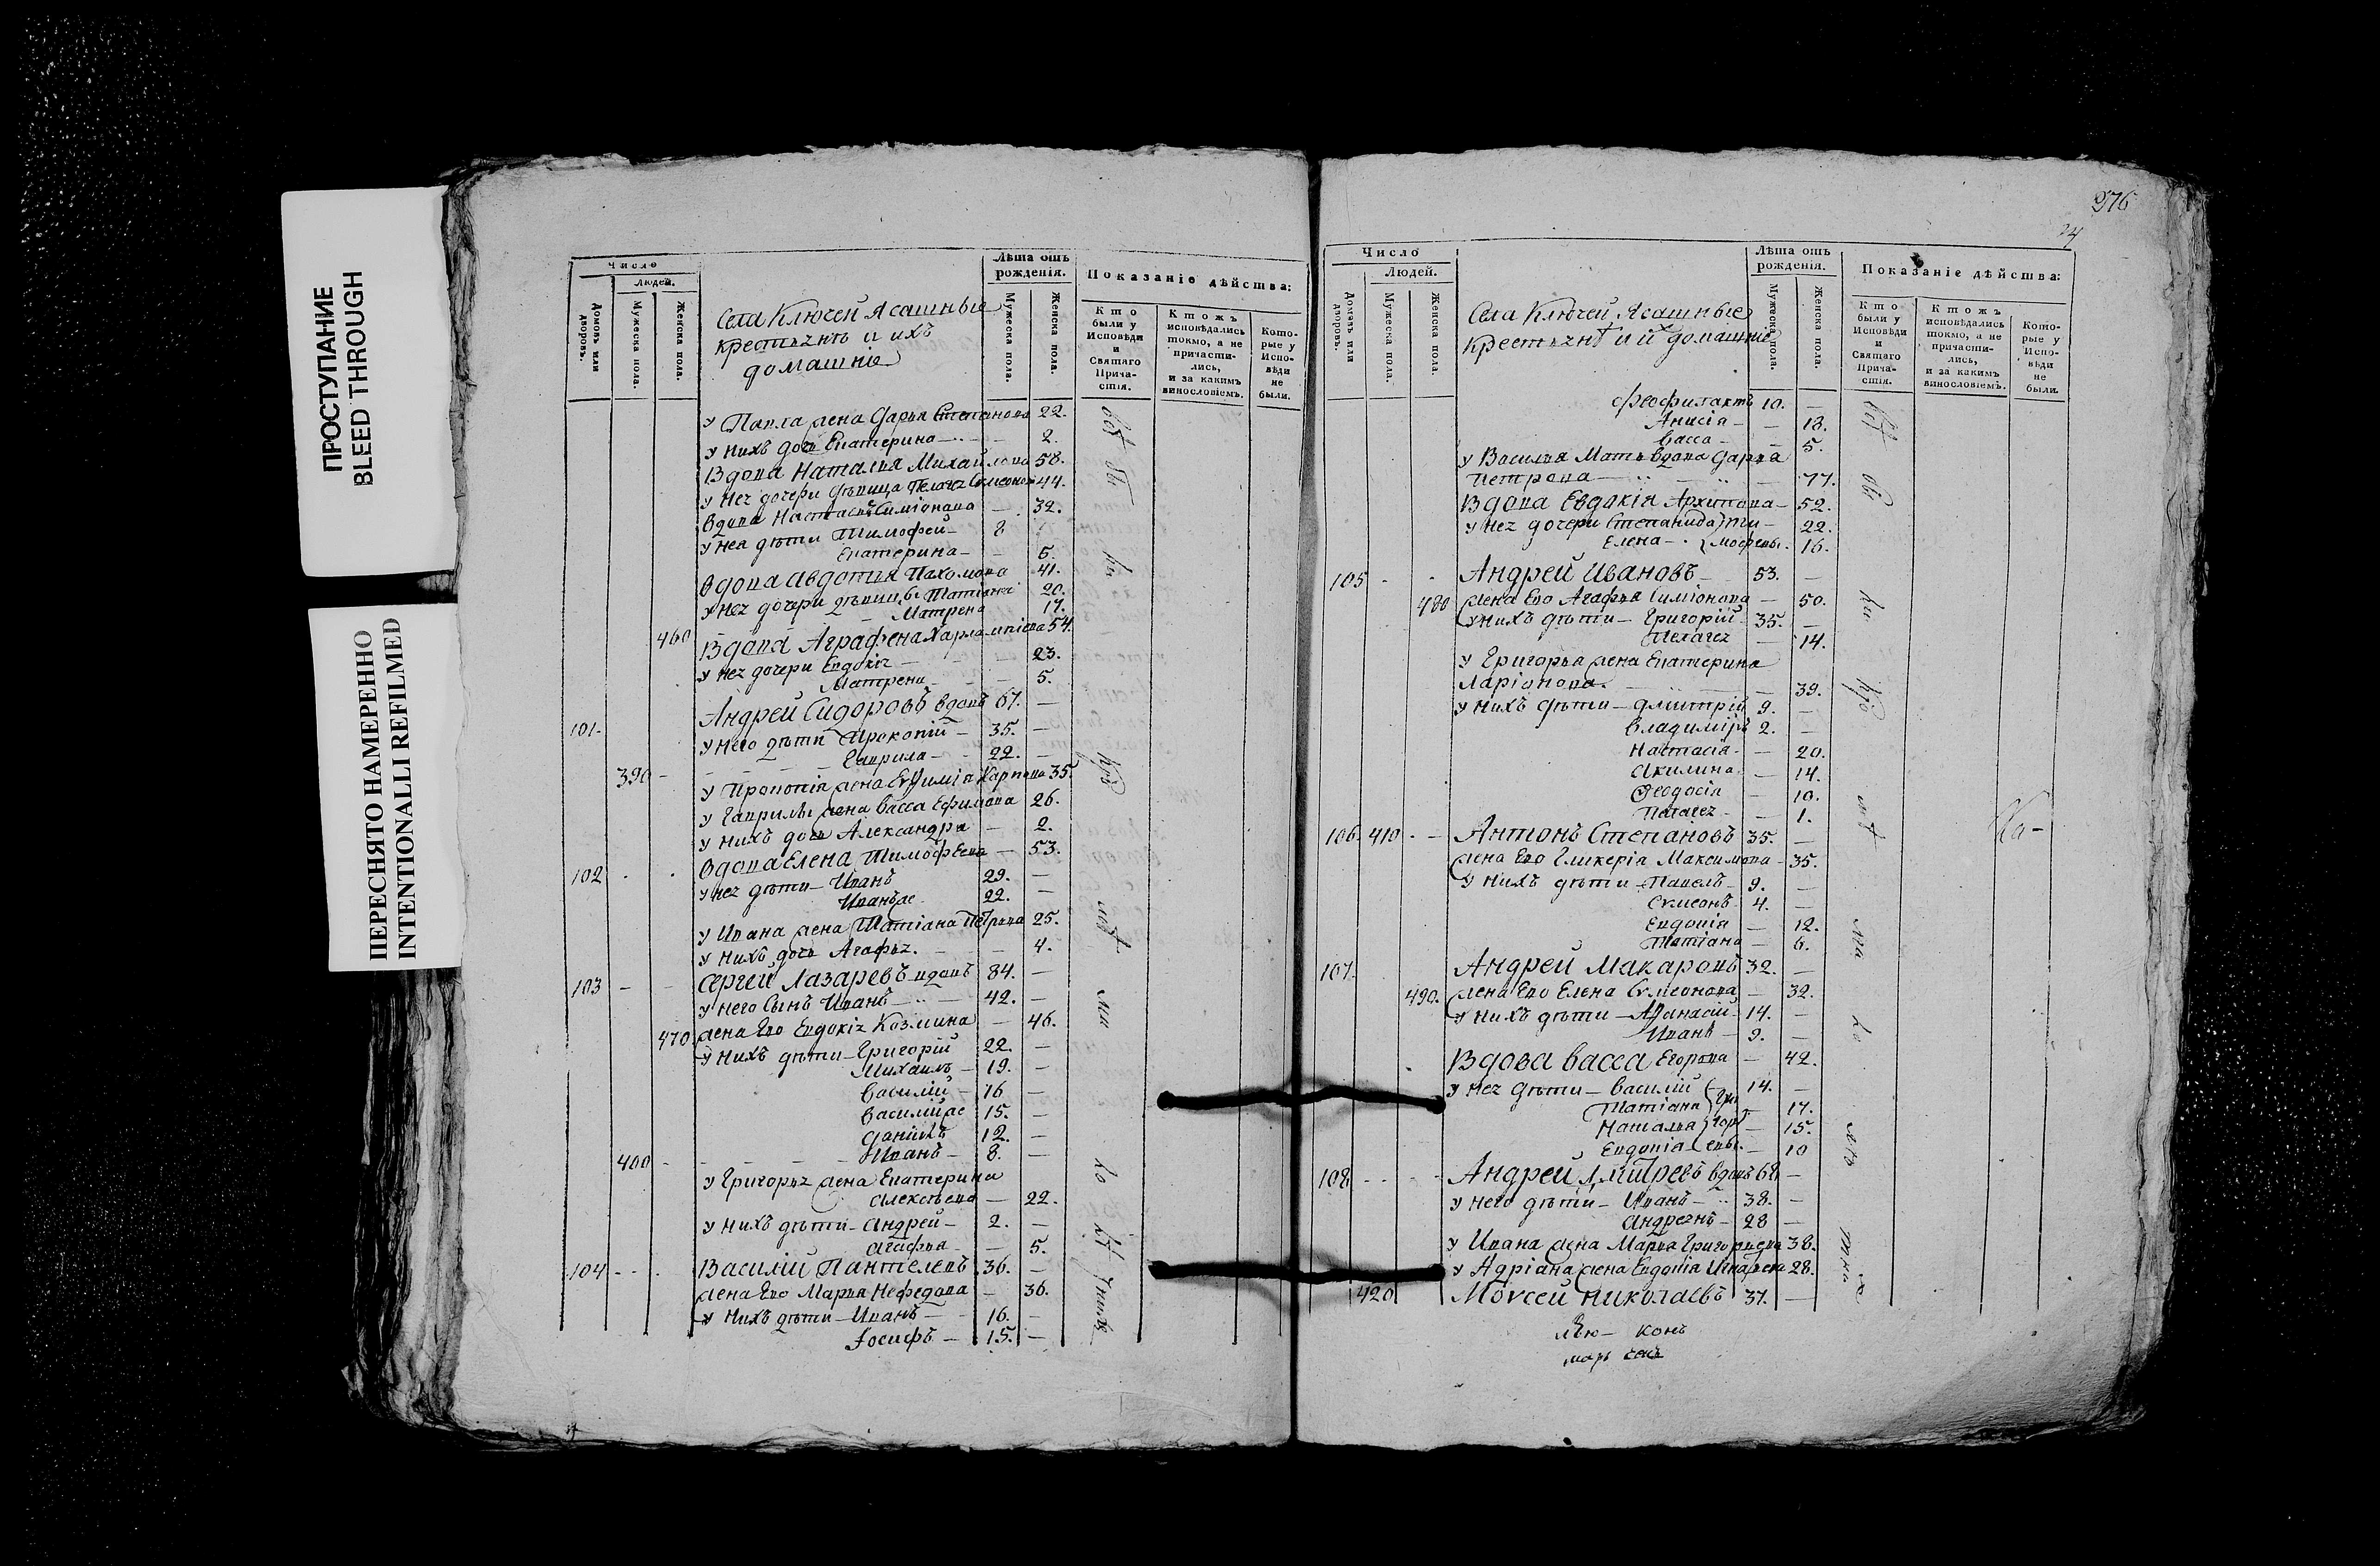 ПРОСТУПАНИЕ
BLEED THROUGH
ПЕРЕСНЯТО НАМЕРЕННО
INTENTIONALLI REFILMED
Число
Людей.
Домовъ или дворовъ.
Мужеска пола.
Женска пола.
Села Ключей Ясашные
крестьянѣ и ихъ
домашніе
Лѣта отъ рожденія.
Мужеска пола.
Женска пола.
Показаніе дѣйства:
Кто были у Исповѣди и Святаго Причастія.
Ктожъ исповѣдались токмо, а не причастились, и за какимъ винословіемъ.
Которые у Исповѣди не были.
У Павла жена Дарья Степанова 22.
у нихъ дочь Екатерина 2.
Вдова Наталья Михайлова 58.
у нея дочери дѣвица Пелагея Симеонова 44.
вдова Настасья Симіонова 32.
у нея дѣти Тимофей 8
Екатерина 5.
Вдова Авдотья Пахомова 41.
у нея дочери дѣвицы Татіана 20.
Матрена 17.
460 Вдова Аграфена Харлампіева 54.
у нея дочери Евдокія 23.
Матрена 5.
101. Андрей Сидоровъ вдовъ 67. —
у него дѣти Прокопій 35. —
390 Гаврила 22. —
у Прокопія жена Евфимія Карпова 35.
у Гаврилы жена Васса Ефимова 26.
у нихъ дочь Александра — 2.
102 Вдова Елена Тимофеева — 53.
у нея дѣти Иванъ 29. —
Иванъ же 22. —
у Ивана жена Татіана Петрова 25.
у нихъ дочь Агафья — 4.
103 Сергей Лазаревъ вдовъ 84. —
у него сынъ Иванъ 42. —
470 жена Его Евдокія Козмина — 46.
у нихъ дѣти Григорій 22. —
Михаилъ 19. —
Василій 16 —
Василій же 15. —
Даніилъ 12. —
400 Иванъ 8. —
у Григорья жена Екатерина
Алексѣева — 22.
у нихъ дѣти Андрей 2. —
Агафья — 5.
104 Василій Пантелеевъ 36. —
жена Его Марья Нефедова — 36.
у нихъ дѣти Иванъ 16. —
Іосифъ 15. —
276
24
Число
Людей.
Домовъ или дворовъ.
Мужеска пола.
Женска пола.
Села Ключей Ясашные
крестьянѣ и их домашніе
Лѣта отъ рожденія.
Мужеска пола.
Женска пола.
Показаніе дѣйства:
Кто были у Исповѣди и Святаго Причастія.
Ктожъ исповѣдались токмо, а не причастились, и за какимъ винословіемъ.
Которые у Исповѣди не были.
Феофилактъ 10. —
Анисія — 18.
Васса — 5.
у Василья Мать вдова Дарья
Петрова — 77.
Вдова Евдокія Архипова 52.
у нея дочери Степанида Ти- 22.
Елена мофеевы 16.
105 Андрей Ивановъ 53. —
480 жена Его Агафья Симіонова — 50.
у нихъ дѣти Григорій 35. —
Пелагея — 14.
у Григорья жена Екатерина
Ларіонова — 39.
у нихъ дѣти Дмитрій 9. —
Владиміръ 2. —
Настасія — 20.
Акилина — 14.
Феодосія — 10.
Пелагея — 1.
106 410 Антонъ Степановъ 35. —
жена Его Гликерія Максимова 35.
у нихъ дѣти Павелъ 9. —
Симеонъ 4. —
Евдокія — 12.
Татіана — 6.
107. Андрей Макаровъ 32. —
490. жена Его Елена Симеонова — 32.
у нихъ дѣти Афанасій 14. —
Иванъ 9. —
Вдова Васса Егорова — 42.
у нея дѣти Василій Гри 14. —
Татіана — 17.
Наталья горь — 15.
Евдокія евы — 10
108 Андрей Дмитревъ вдовъ 68 —
у него дѣти Иванъ 38. —
Андреянъ 28 —
у Ивана жена Марья Григорьева 38.
у Адріана жена Евдокія Игнатьева 28.
420 Моисей Николаевъ 37. —